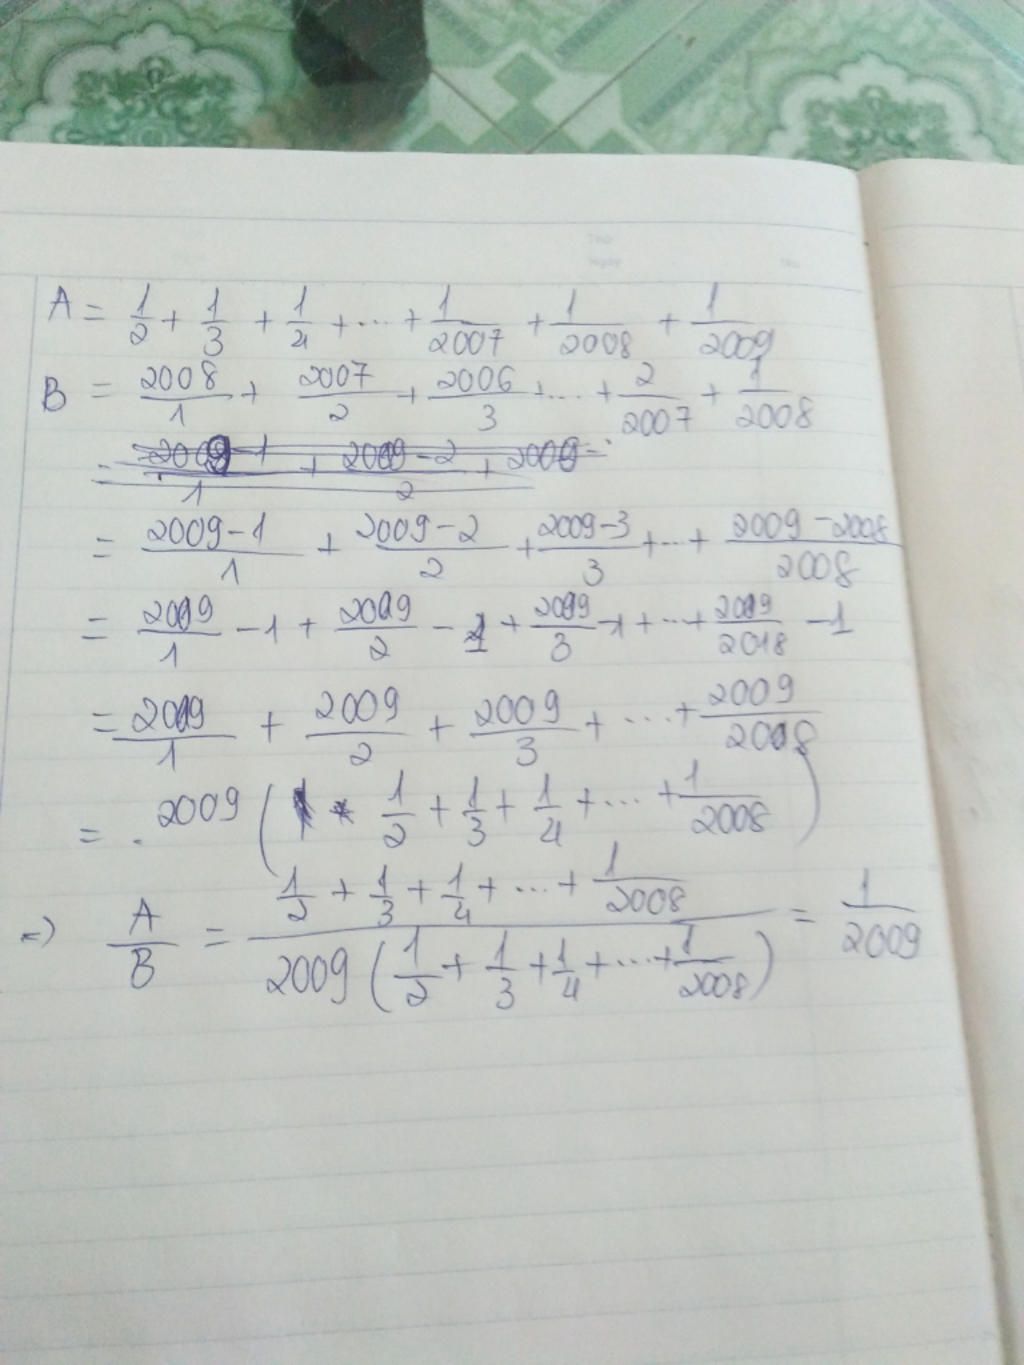 A = 1/2 + 1/3 + 1/4 + ... + 1/2007 + 1/2008 + 1/2009
B = 2008/1 + 2007/2 + 2006/3 + ... + 2/2007 + 1/2008
= 2009-1/1 + 2009-2/2 + 2009-
= 2009-1/1 + 2009-2/2 + 2009-3/3 + ... + 2009-2008/2008
= 2009/1 - 1 + 2009/2 - 1 + 2009/3 - 1 + ... + 2009/2018 - 1
= 2009/1 + 2009/2 + 2009/3 + ... + 2009/2008
= . 2009 ( 1/2 + 1/3 + 1/4 + ... + 1/2008 )
=> A/B = 1/2 + 1/3 + 1/4 + ... + 1/2008 / 2009 ( 1/2 + 1/3 + 1/4 + ... + 1/2008 ) = 1/2009